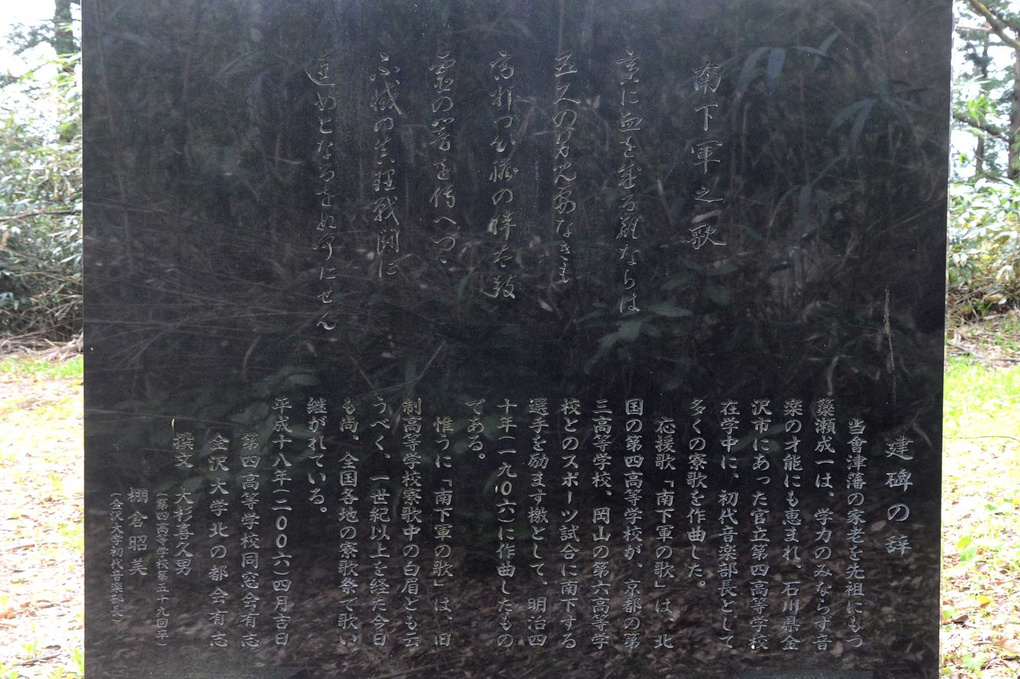 南下軍之歌
ただに血を盛る瓶ならば
五尺の男児要なきも
高打つ心臓の陣太鼓
霊の響を伝へつつ
不滅の真理戦闘に
進めとなるをぬかにせん
建碑の辞
当會津藩の家老を先祖にもつ
簗瀬成一は、学力のみならず音
楽の才能にも恵まれ、石川県金
沢市にあった官立第四高等学校
在学中に、初代音楽部長として
多くの寮歌を作曲した。
応援歌「南下軍の歌」は、北
国の第四高等学校が、京都の第
三高等学校、岡山の第六高等学
校とのスポーツ試合に南下する
選手を励ます檄として、明治四
十年(一九〇六)に作曲したもの
である。
惟うに「南下軍の歌」は、旧
制高等学校寮歌中の白眉とも云
うべく、一世紀以上を経た今日
も尚、全国各地の寮歌祭で歌い
継がれている。
平成十八年(二〇〇六)四月吉日
第四高等学校同窓会有志
金沢大学北の都会有志
撰文 大杉喜久男
(第四高等学校第五十九回卒)
棚倉昭美
(金沢大学初代音楽部長)